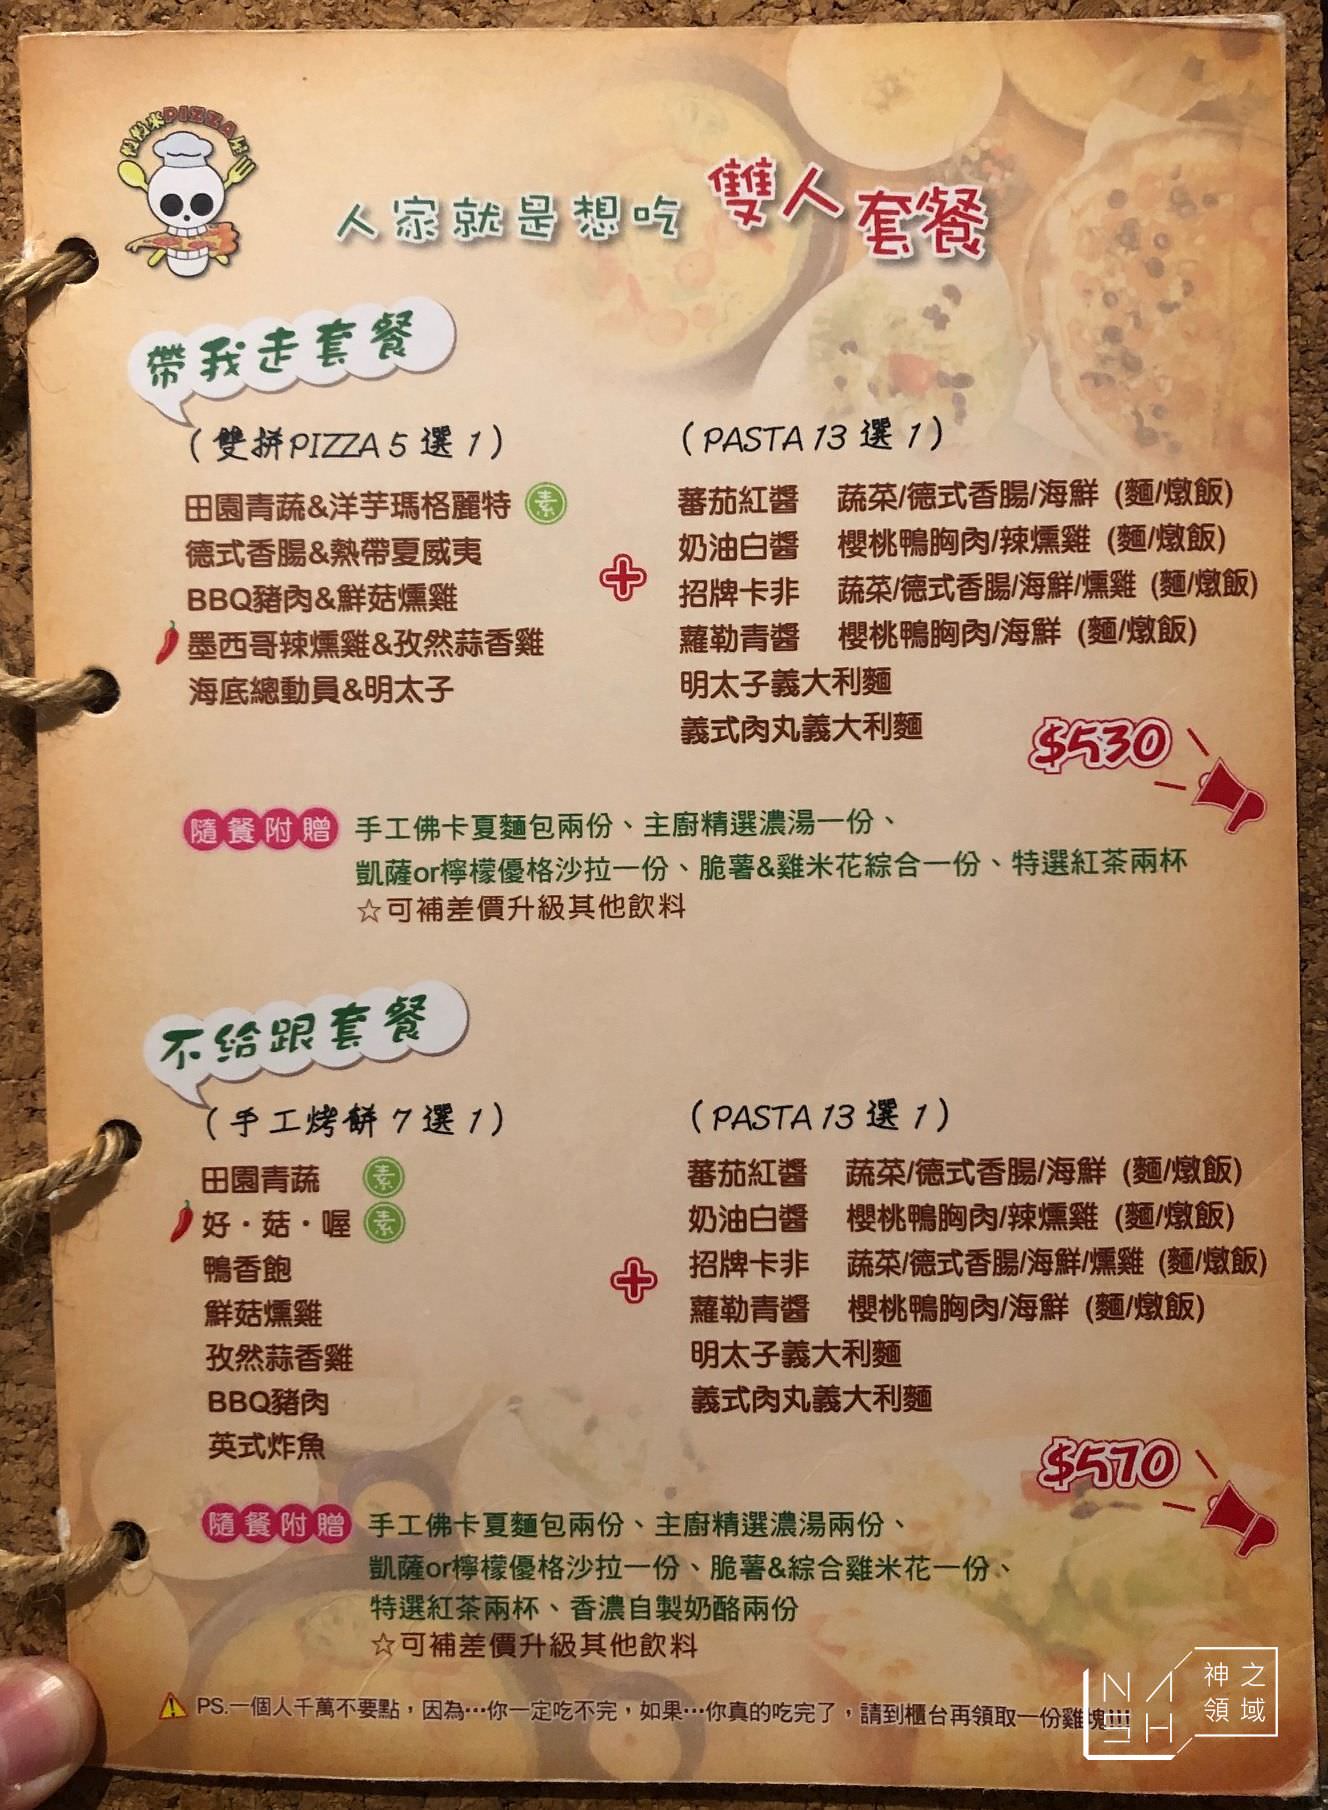 PIZZA
人家就是想吃 雙人套餐
帶我走套餐
(雙拼PIZZA 5 選 1)
田園青蔬&洋芋瑪格麗特 素
德式香腸&熱帶夏威夷
BBQ豬肉&鮮菇燻雞
墨西哥辣燻雞&孜然蒜香雞
海底總動員&明太子
(PASTA 13 選 1)
蕃茄紅醬 蔬菜/德式香腸/海鮮 (麵/燉飯)
奶油白醬 櫻桃鴨胸肉/辣燻雞 (麵/燉飯)
招牌卡非 蔬菜/德式香腸/海鮮/燻雞 (麵/燉飯)
蘿勒青醬 櫻桃鴨胸肉/海鮮 (麵/燉飯)
明太子義大利麵
義式肉丸義大利麵
$530
隨餐附贈 手工佛卡夏麵包兩份、主廚精選濃湯一份、
凱薩or檸檬優格沙拉一份、脆薯&雞米花綜合一份、特選紅茶兩杯
☆可補差價升級其他飲料
不給跟套餐
(手工烤餅 7 選 1)
田園青蔬 素
好・菇・喔 素
鴨香飽
鮮菇燻雞
孜然蒜香雞
BBQ豬肉
英式炸魚
(PASTA 13 選 1)
蕃茄紅醬 蔬菜/德式香腸/海鮮 (麵/燉飯)
奶油白醬 櫻桃鴨胸肉/辣燻雞 (麵/燉飯)
招牌卡非 蔬菜/德式香腸/海鮮/燻雞 (麵/燉飯)
蘿勒青醬 櫻桃鴨胸肉/海鮮 (麵/燉飯)
明太子義大利麵
義式肉丸義大利麵
$570
隨餐附贈 手工佛卡夏麵包兩份、主廚精選濃湯兩份、
凱薩or檸檬優格沙拉一份、脆薯&綜合雞米花一份、
特選紅茶兩杯、香濃自製奶酪兩份
☆可補差價升級其他飲料
PS.一個人千萬不要點，因為…你一定吃不完，如果…你真的吃完了，請到櫃台再領取一份雞塊!!!
NASH 神之領域